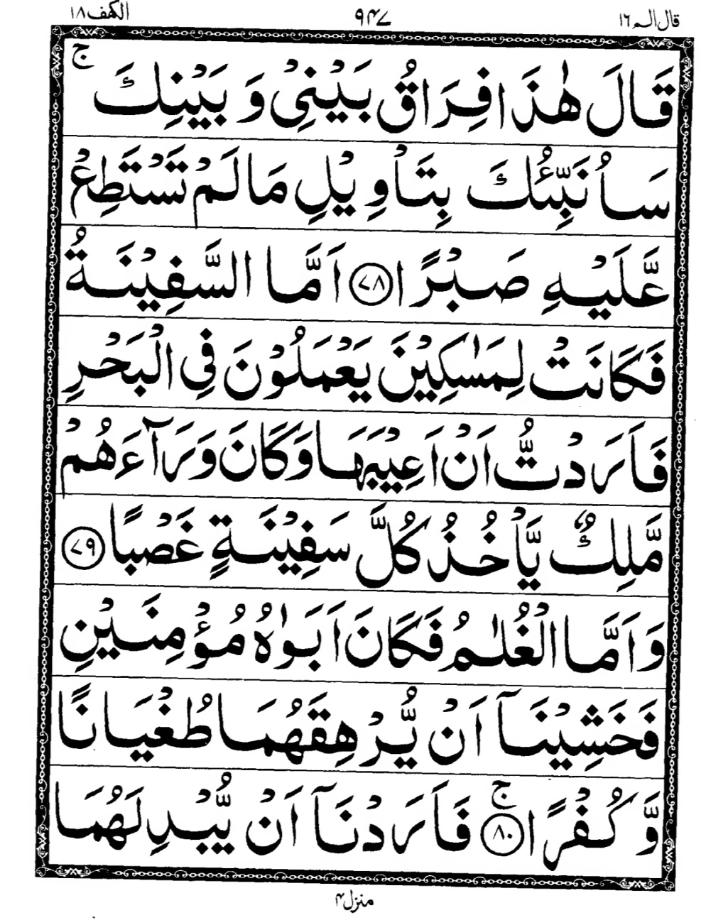 قال الم ١٦
٩٤٧
الكهف ١٨
قَالَ هٰذَا فِرَاقُ بَيْنِيْ وَ بَيْنِكَ ۚ
سَاُنَبِّئُكَ بِتَاْوِيْلِ مَا لَمْ تَسْتَطِعْ
عَّلَيْهِ صَبْرًا ﴿٧٨﴾ اَمَّا السَّفِيْنَةُ
فَكَانَتْ لِمَسٰكِيْنَ يَعْمَلُوْنَ فِى الْبَحْرِ
فَاَرَدْتُّ اَنْ اَعِيْبَهَا وَكَانَ وَرَآءَهُمْ
مَّلِكٌ يَّاْخُذُ كُلَّ سَفِيْنَةٍ غَصْبًا ﴿٧٩﴾
وَاَمَّا الْغُلٰمُ فَكَانَ اَبَوٰهُ مُؤْمِنَيْنِ
فَخَشِيْنَآ اَنْ يُّرْهِقَهُمَا طُغْيَانًا
وَّكُفْرًا ﴿٨٠﴾ ۚ فَاَرَدْنَآ اَنْ يُّبْدِلَهُمَا
منزل ۴